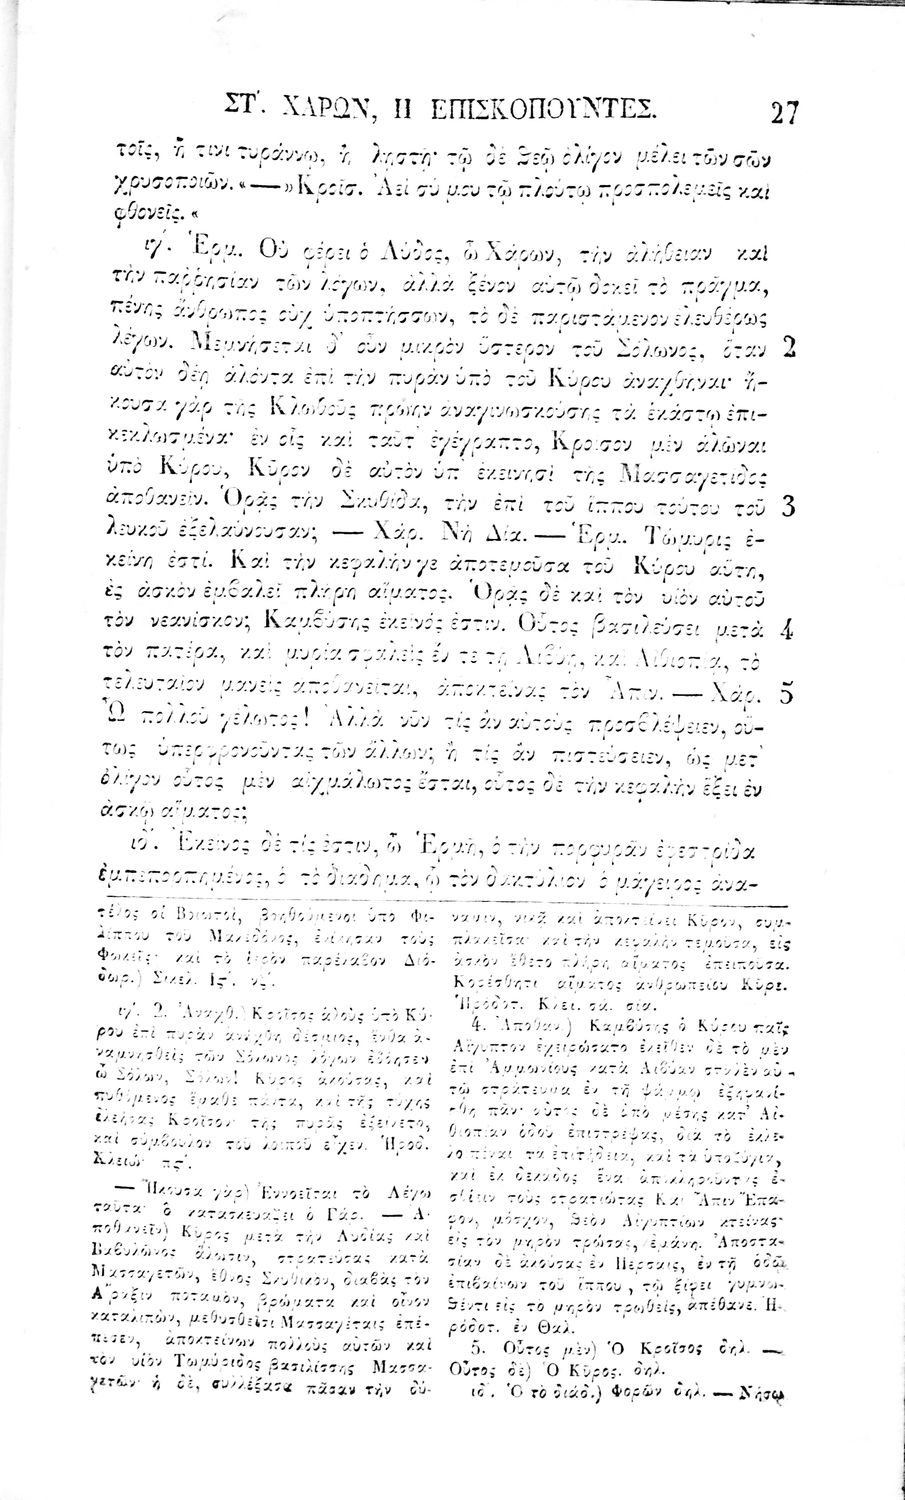 ΣΤ΄. ΧΑΡΩΝ, Η ΕΠΙΣΚΟΠΟΥΝΤΕΣ. 27
τοῖς, ἤ τινι τυράννῳ, ἢ λῃστῇ· τῷ δὲ θεῷ ὀλίγον μέλει τῶν σῶν
χρυσοποιῶν. « — » Κροῖσ. Ἀεὶ σύ μου τῷ πλούτῳ προσπολεμεῖς καὶ
φθονεῖς. «
ιγ΄. Ἑρμ. Οὐ φέρει ὁ Λυδὸς, ὦ Χάρων, τὴν ἀλήθειαν καὶ
τὴν παῤῥησίαν τῶν λόγων, ἀλλὰ ξένον αὐτῷ δοκεῖ τὸ πρᾶγμα,
πένης ἄνθρωπος οὐχ ὑποπτήσσων, τὸ δὲ παριστάμενον ἐλευθέρως
λέγων. Μεμνήσεται δ᾽ οὖν μικρὸν ὕστερον τοῦ Σόλωνος, ὅταν 2
αὐτὸν δέῃ ἁλόντα ἐπὶ τὴν πυρὰν ὑπὸ τοῦ Κύρου ἀναχθῆναι· ἤ-
κουσα γὰρ τῆς Κλωθοῦς πρώην ἀναγινωσκούσης τὰ ἑκάστῳ ἐπι-
κεκλωσμένα· ἐν οἷς καὶ ταῦτ᾽ ἐγέγραπτο, Κροῖσον μὲν ἁλῶναι
ὑπὸ Κύρου, Κῦρον δὲ αὐτὸν ὑπ᾽ ἐκεινησὶ τῆς Μασσαγέτιδος
ἀποθανεῖν. Ὁρᾷς τὴν Σκυθίδα, τὴν ἐπὶ τοῦ ἵππου τούτου τοῦ 3
λευκοῦ ἐξελαύνουσαν; — Χάρ. Νὴ Δία. — Ἑρμ. Τώμυρις ἐ-
κείνη ἐστί. Καὶ τὴν κεφαλήν γε ἀποτεμοῦσα τοῦ Κύρου αὕτη,
ἐς ἀσκὸν ἐμβαλεῖ πλήρη αἵματος. Ὁρᾷς δὲ καὶ τὸν υἱὸν αὐτοῦ
τὸν νεανίσκον; Καμβύσης ἐκεῖνός ἐστιν. Οὗτος βασιλεύσει μετὰ 4
τὸν πατέρα, καὶ μυρία σφαλεὶς ἔν τε τῇ Λιβύῃ, καὶ Αἰθιοπίᾳ, τὸ
τελευταῖον μανεὶς ἀποθανεῖται, ἀποκτείνας τὸν Ἆπιν. — Χάρ. 5
Ὢ πολλοῦ γέλωτος! Ἀλλὰ νῦν τίς ἂν αὐτοὺς προσβλέψειεν, οὕ-
τως ὑπερφρονοῦντας τῶν ἄλλων; ἢ τίς ἂν πιστεύσειεν, ὡς μετ᾽
ὀλίγον οὗτος μὲν αἰχμάλωτος ἔσται, οὗτος δὲ τὴν κεφαλὴν ἕξει ἐν
ἀσκῷ αἵματος;
ιδ΄. Ἐκεῖνος δὲ τίς ἐστιν, ὦ Ἑρμῆ, ὁ τὴν πορφυρᾶν ἐφεστρίδα
ἐμπεπορπημένος, ὁ τὸ διάδημα, ᾧ τὸν δακτύλιον ὁ μάγειρος ἀνα-
τέλος οἱ Βοιωτοὶ, βοηθούμενοι ὑπὸ Φι-
λίππου τοῦ Μακεδόνος, ἐνίκησαν τοὺς
Φωκεῖς· καὶ τὸ ἱερὸν παρέλαβον Διό-
δωρ.) Σικελ. Ις΄. νς΄.
ιγ΄. 2. Ἀναχθ.) Κροῖσος ἁλοὺς ὑπὸ Κύ-
ρου ἐπὶ πυρὰν ἀνέχθη δέσμιος, ἔνθα ἀ-
ναμνησθεὶς τῶν Σόλωνος λόγων ἐβόησεν
ὦ Σόλων, Σόλων! Κῦρος ἀκούσας, καὶ
πυθόμενος ἔμαθε πάντα, καὶ τῆς τύχης
ἐλεήσας Κροῖσον τῆς πυρᾶς ἐξείλετο,
καὶ σύμβουλον τοῦ λοιποῦ εἶχεν. Ἡροδ.
Κλειώ· πς΄.
— Ἤκουσα γὰρ) Ἐννοεῖται τὸ Λέγω
ταῦτα· ὃ κατασκευάζει ὁ Γάρ. — Ἀ-
ποθανεῖν) Κῦρος μετὰ τὴν Λυδίας καὶ
Βαβυλῶνος ἅλωσιν, στρατεύσας κατὰ
Μασσαγετῶν, ἔθνος Σκυθικὸν, διαβὰς τὸν
Ἀράξιν ποταμὸν, βρώματα καὶ οἶνον
καταλιπὼν, μεθυσθεῖσι Μασσαγέταις ἐπέ-
πεσεν, ἀποκτείνων πολλοὺς αὐτῶν καὶ
τὸν υἱὸν Τωμύριδος βασιλίσσης Μασσα-
γετῶν· ἡ δὲ, συλλέξασα πᾶσαν τὴν δύ-
ναμιν, νικᾷ καὶ ἀποκτείνει Κῦρον, συμ-
πλακεῖσα· καὶ τὴν κεφαλὴν τεμοῦσα, εἰς
ἀσκὸν ἔθετο πλήρη αἵματος ἐπειποῦσα.
Κορέσθητι αἵματος ἀνθρωπείου Κῦρε.
Ἡρόδοτ. Κλει. σά. σία.
4. Ἀποθαν.) Καμβύσης ὁ Κύρου παῖς
Αἴγυπτον ἐχειρώσατο ἐκεῖθεν δὲ τὸ μὲν
ἐπὶ Ἀμμωνίους κατὰ Λιβύαν σταλὲν αὐ-
τῷ στράτευμα ἐν τῇ ψάμμῳ ἐξηφανί-
σθη πᾶν· οὗτος δὲ ἀπὸ μέσης κατ᾽ Αἰ-
θιοπίαν ὁδοῦ ἐπιστρέψας, διὰ τὸ ἐκλε-
λοιπέναι τὰ ἐπιτήδεια, καὶ τὰ ὑποζύγια,
καὶ ἐκ δεκάδος ἕνα ἀποκληροῦντας ἐ-
σθίειν τοὺς στρατιώτας Καὶ Ἆπιν Ἔπα-
φον, μόσχον, θεὸν Αἰγυπτίων κτείνας
εἰς τὸν μηρὸν τρώσας, ἐμάνη. Ἀποστα-
σίαν δὲ ἀκούσας ἐν Πέρσαις, ἐν τῇ ὁδῷ
ἐπιβαίνων τοῦ ἵππου, τῷ ξίφει γυμνω-
θέντι εἰς τὸ μηρὸν τρωθεὶς, ἀπέθανε. Ἡ-
ρόδοτ. ἐν Θαλ.
5. Οὗτος μὲν) Ὁ Κροῖσος δηλ. —
Οὗτος δὲ) Ὁ Κῦρος. δηλ.
ιδ΄. Ὁ τὸ διάδ.) Φορῶν δηλ. — Νήσῳ